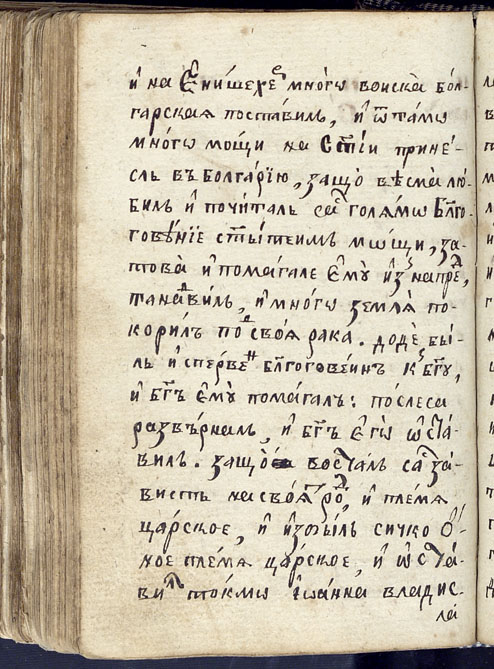 и на Е҆нишехе҆ много воиска бол-
гарская поставилъ, и ѿтамѡ
многѡ мощи на Ст҃їи прине-
слъ въ Болгарїю, защо вѣсма лю-
билъ и почиталъ са с голямѡ Бл҃го-
говѣнїе ст҃ы теимъ мѡщи, за-
това и помагале Емꙋ
танавилъ, и многѡ земля по-
корилъ под своя рака. доде бы-
лъ и сперве бл҃гоговеинъ къ бг҃ꙋ,
и бг҃ъ емꙋ помагалъ: после са
развърналъ, и бг҃ъ егѡ ѡста-
вилъ. защо восталъ са за-
висть на своя род, и племя
царское, и изгꙋбилъ сичко о-
ное племя царское, и ѡста-
вил токмѡ Іѡанна владис-
ла